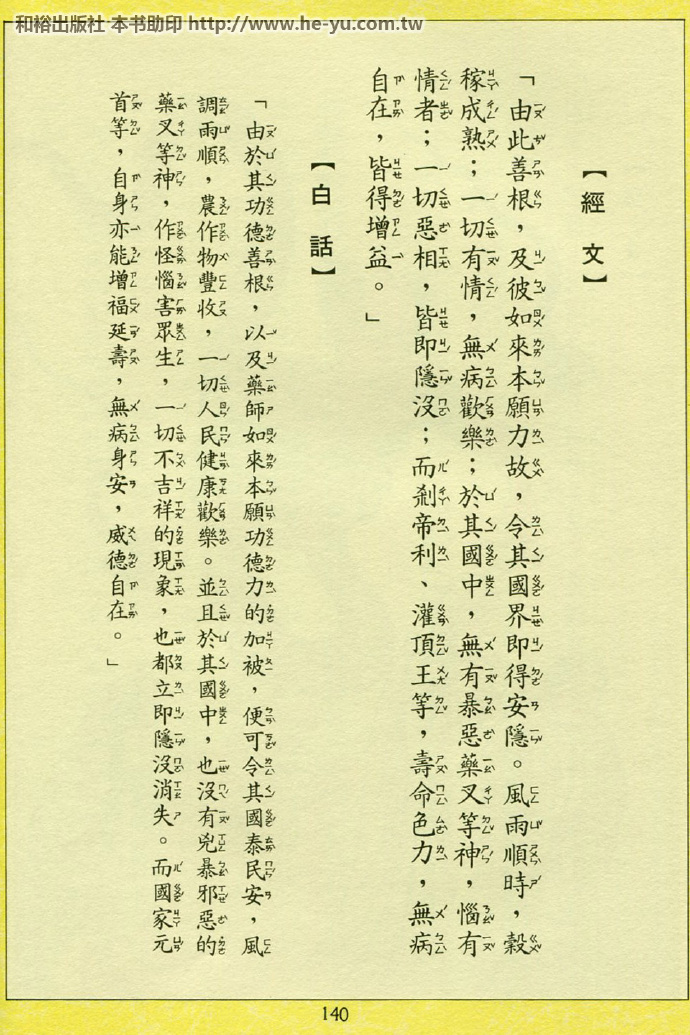 和裕出版社 本书助印 http://www.he-yu.com.tw
【經文】
「由此善根，及彼如來本願力故，令其國界即得安隱。風雨順時，穀
稼成熟；一切有情，無病歡樂；於其國中，無有暴惡藥叉等神，惱有
情者；一切惡相，皆即隱沒；而剎帝利、灌頂王等，壽命色力，無病
自在，皆得增益。」
【白話】
「由於其功德善根，以及藥師如來本願功德力的加被，便可令其國泰民安，風
調雨順，農作物豐收，一切人民健康歡樂。並且於其國中，也沒有兇暴邪惡的
藥叉等神，作怪惱害眾生，一切不吉祥的現象，也都立即隱沒消失。而國家元
首等，自身亦能增福延壽，無病身安，威德自在。」
140